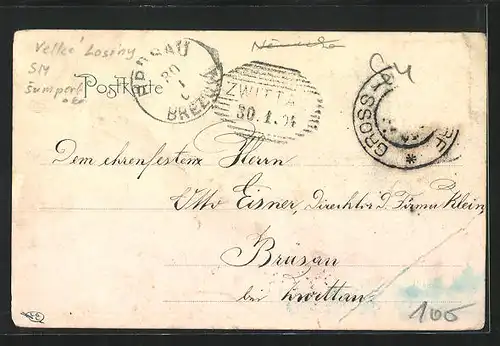 Velké Losiny
SM
Šumperk
Postkarte
BRÜSAU
BREZOVÁ
ZWITTA
30.1.04
GROSS
04
Dem ehrenfesten Herrn
Otto Eisner, Direktor d. Firma Klein,
Brüsau
bei Zwittau.
100